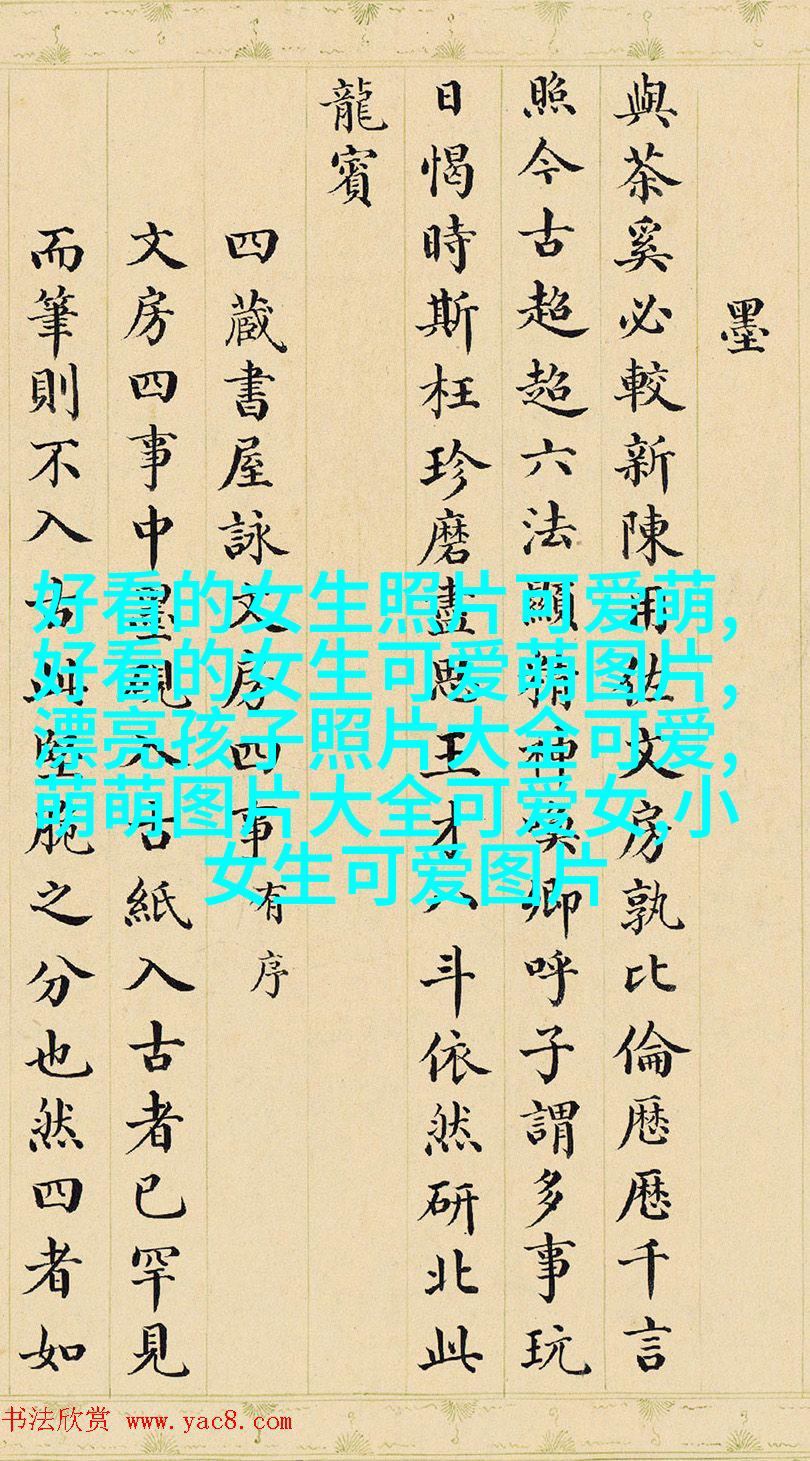 墨
與茶奚必較新陳用佐文房孰比倫歷歷千言
照今古超超六法顯精神卿呼子謂多事玩
日愒時斯枉珍磨盡思王才八斗依然研北此
龍賓
四藏書屋詠文房四事有序
文房四事中墨硯入古紙入古者已罕見
而筆則不入古堅脆之分也然四者如
好看的女生照片可爱萌,
好看的女生可爱萌图片,
漂亮孩子照片大全可爱,
萌萌图片大全可爱女,小
女生可爱图片
书法欣赏 www.yac8.com